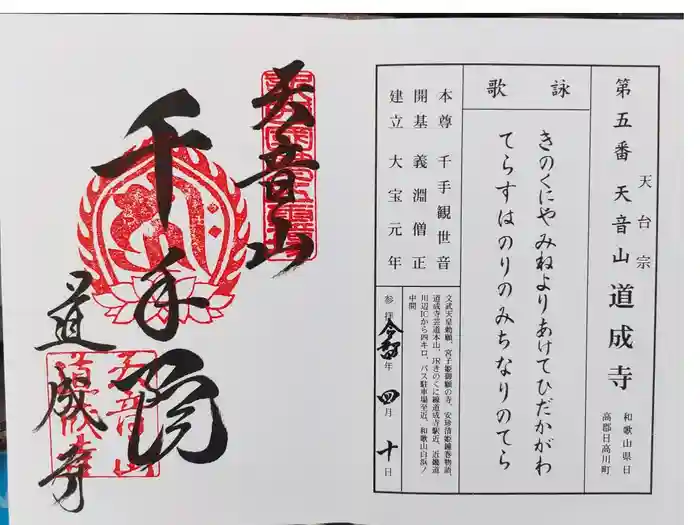 天台宗
第五番 天音山 道成寺
和歌山県日
高郡日高川町
詠歌
きのくにや みねよりあけてひだかがわ
てらすはのりのみちなりのてら
本尊 千手観世音
開基 義淵僧正
建立 大宝元年
文武天皇勅願、宮子姫御願の寺、安珍清姫鐘巻物語、
道成寺芸道本山、JRきのくに線道成寺駅近、近畿道
川辺ICから四キロ、バス駐車場至近、和歌山白浜ノ
中間
参拝 令和 年 四月 十日
天音山
千手閣
道成寺
天音山
道成寺